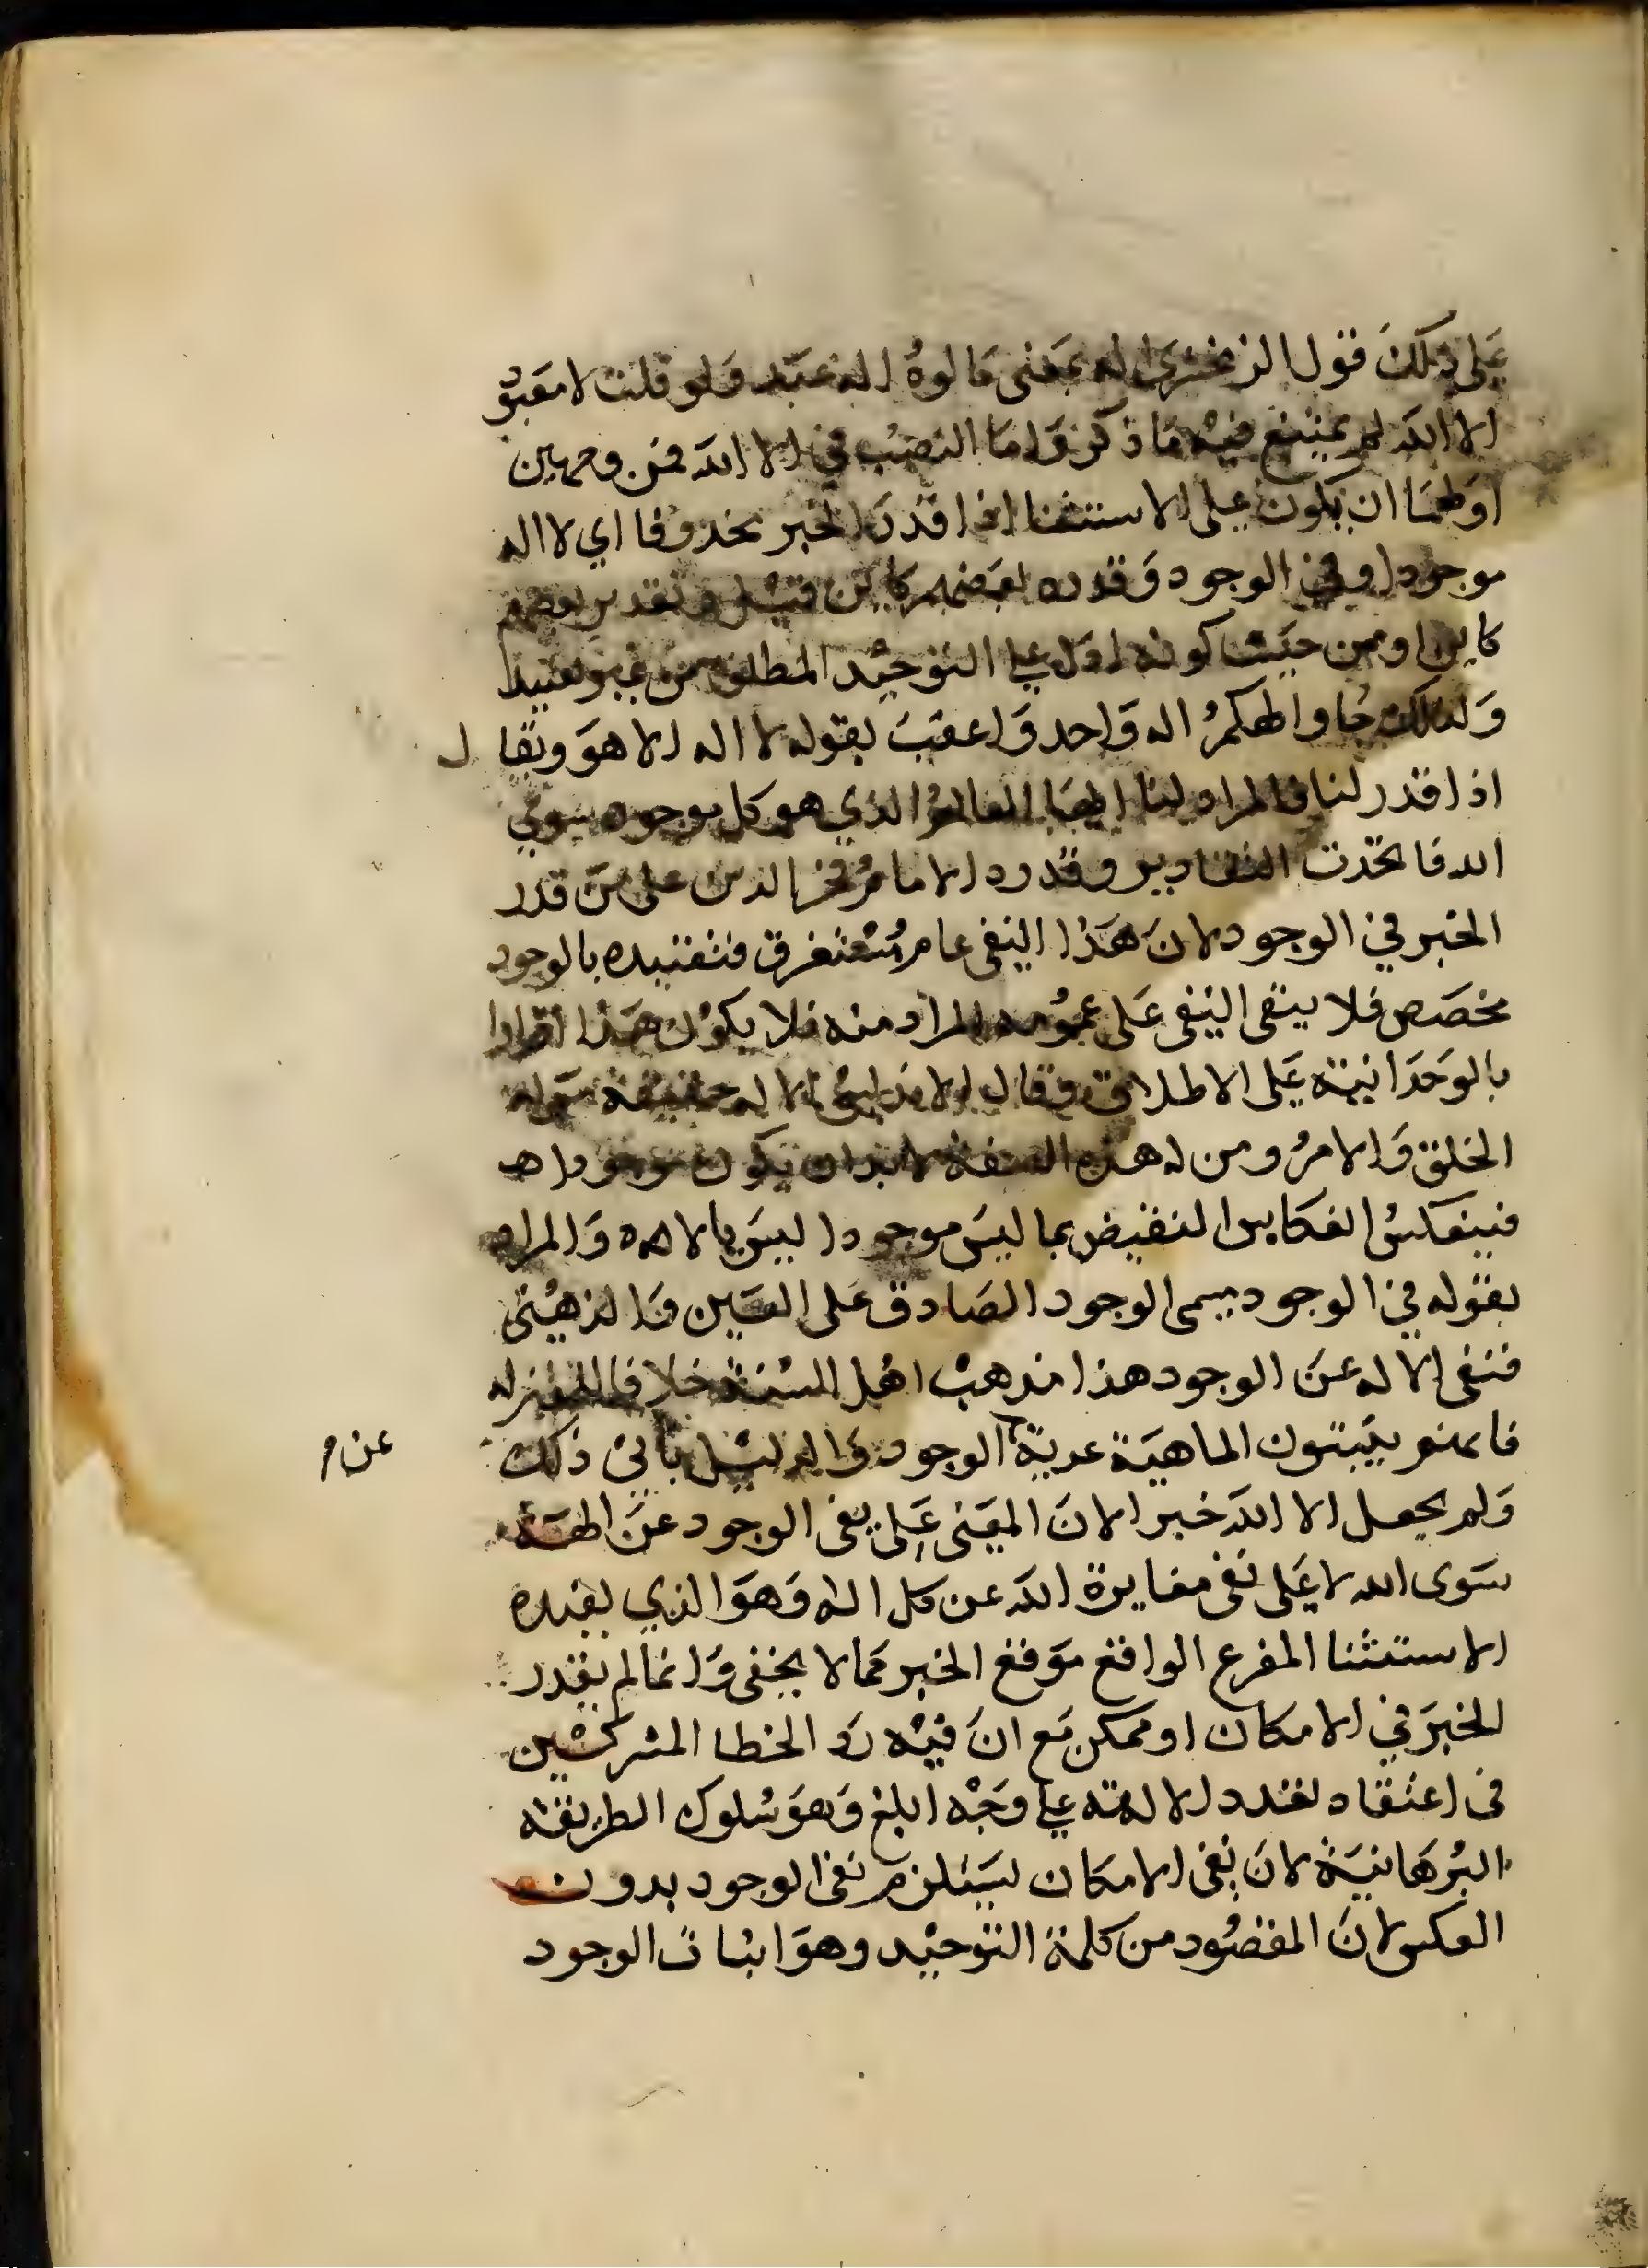 على ذلك قول الزمخشري اله بمعنى مالوه اله عبد ولو قلت لا معبود
الا الله لم يمتنع فيه ما ذكر واما النصب في الا الله فمن وجهين
اولهما ان يكون على الاستثنا اذا قدر الخبر محذوفا اي لا اله
موجود او في الوجود وقدره بعضهم كاين قبل وتقدير بعضهم
كاين او من حيث كونه ادل على التوحيد المطلق من غير تقييد
ولذلك جا والهكم اله واحد واعقب بقوله لا اله الا هو ويقال
اذا قدر لنا فالمراد لنا ايها العالم الذي هو كل موجود سوى
الله فاتحدت التقادير وقد رد الامام فخر الدين على من قدر
الخبر في الوجود لان هذا النفي عام مستغرق فتقييده بالوجود
مخصص فلا يبقى النفي على عمومه المراد منه فلا يكون هذا اقرارا
بالوحدانية على الاطلاق وقال الاندلسي الاله حقيقة من له
الخلق والامر ومن له هذه الصفة لابد ان يكون موجودا
فينعكس النقيض بما ليس موجودا ليس بالاله والمراد
بقوله في الوجود مسمى الوجود الصادق على العين والذهني
فنفى الاله عن الوجود هذا مذهب اهل السنة خلافا للمعتزله
فانهم يثبتون الماهية عرية الوجود والدليل يابى ذلك
عن م
ولم يجعل الا الله خبرا لان المعنى على نفى الوجود عن الهة
سوى الله لا على نفي مغايرة الله عن كل اله وهو الذي يفيده
الاستثنا المفرع الواقع موقع الخبر كما لا يخفى وانما لم يقدر
الخبر في الامكان او ممكن مع ان فيه رد الخطا المشركين
فى اعتقاد تعدد الالهة على وجه ابلغ وهو سلوك الطريقه
البرهانية لان نفى الامكان يستلزم نفى الوجود بدون
العكس لان المقصود من كلمة التوحيد وهو اثبات الوجود